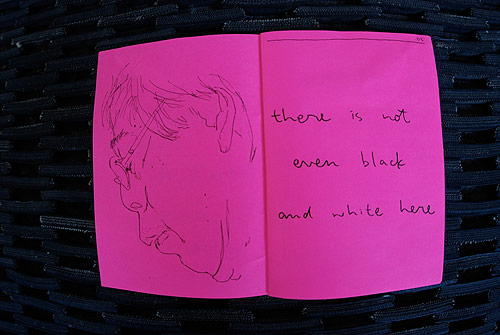 there is not
even black
and white here